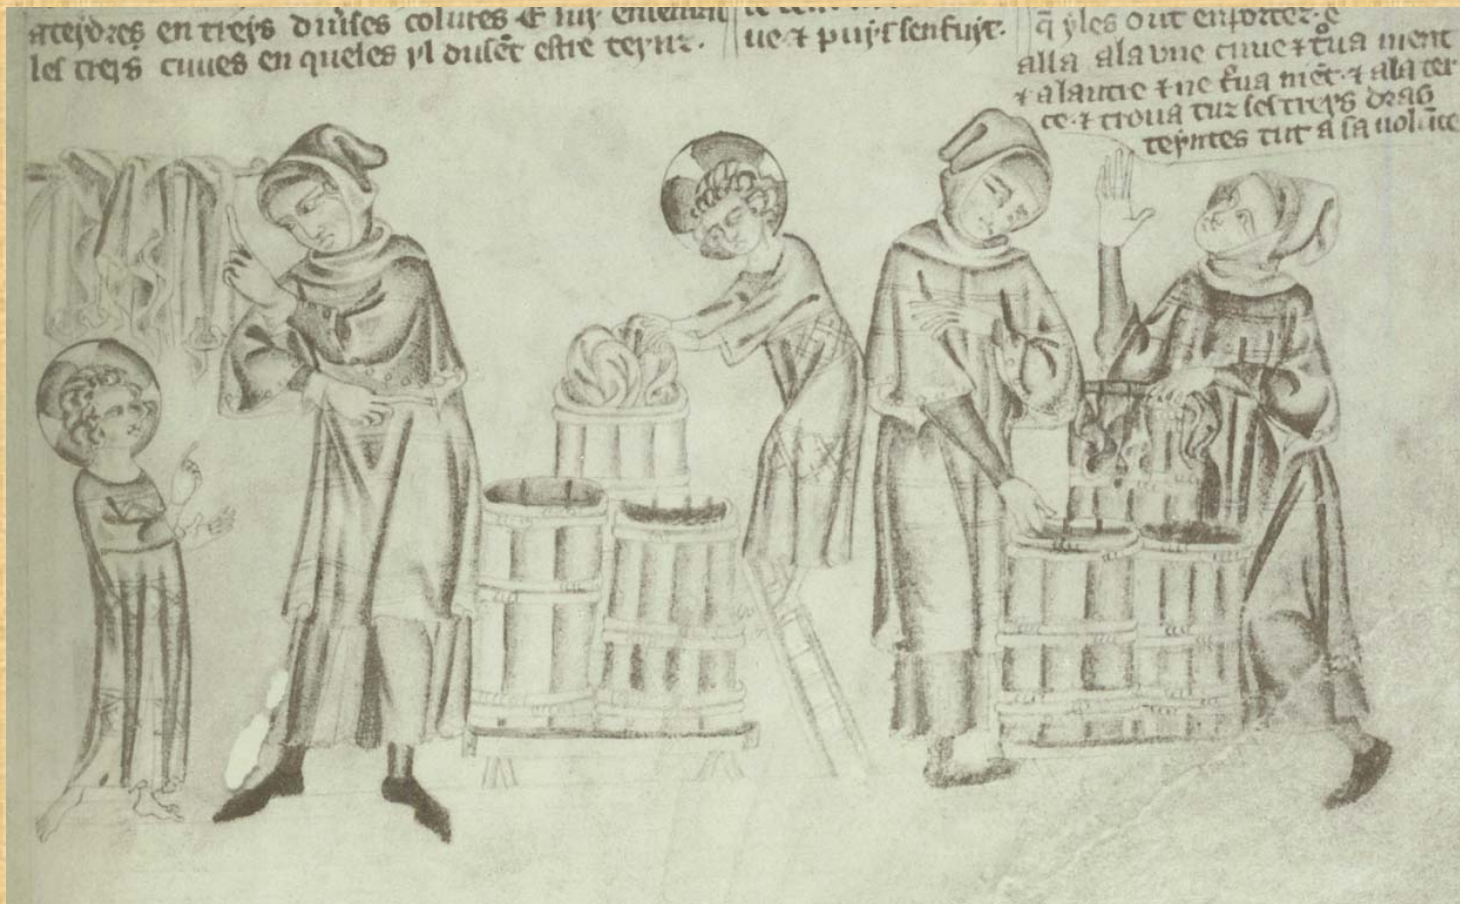 ateydres en treys diũses colures & luy
les treys cuues en queles yl dusēt estre teynz.
ue ⁊ puys senfuyt.
q̃ yles out enportez. e
alla ala vne cuue ⁊ t̊ua nient
⁊ alautre ⁊ ne t̊ua niēt ⁊ ala ter
ce ⁊ troua tuz ses treys dras
teyntes tut a sa